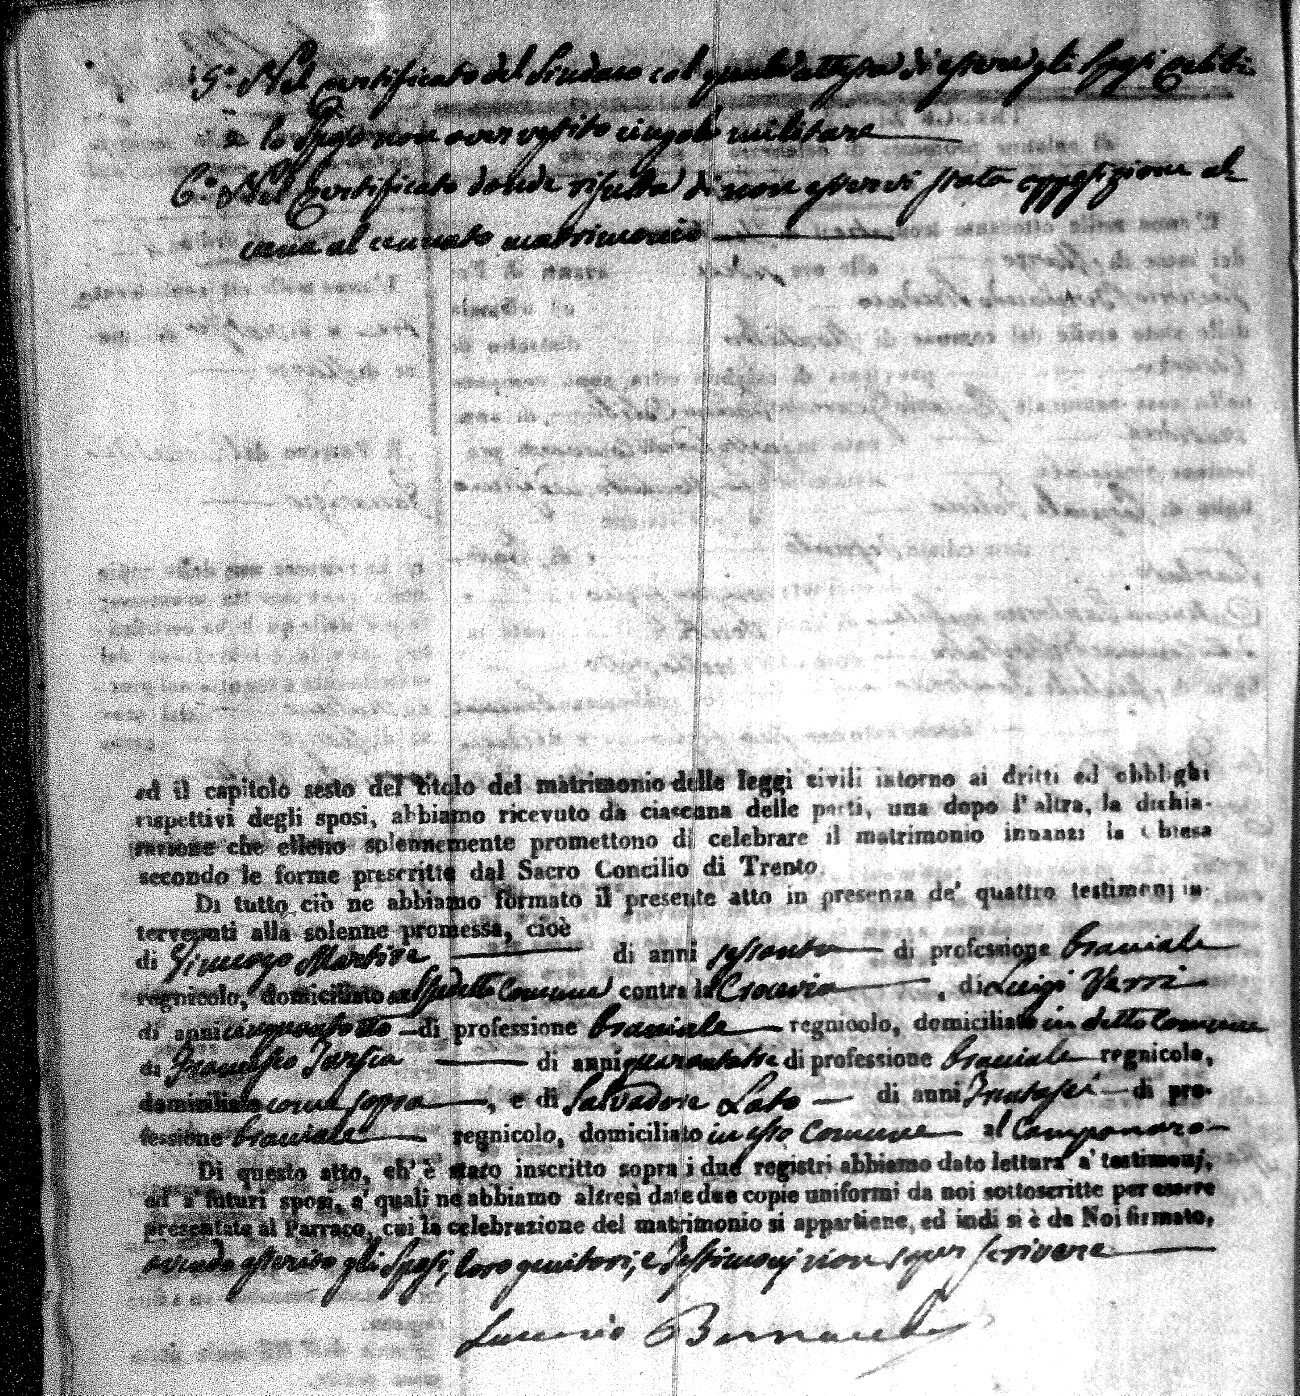 5.° Nel certificato del Sindaco col quale attesta di essere gli Sposi celibi
e lo Sposo non aver vestito cingolo militare
6.° Nel certificato donde risulta di non esservi stata opposizione al
cuna al cennato matrimonio
ed il capitolo sesto del titolo del matrimonio delle leggi civili intorno ai dritti ed obblighi
rispettivi degli sposi, abbiamo ricevuto da ciascuna delle parti, una dopo l'altra, la dichia-
razione che elleno solennemente promettono di celebrare il matrimonio innanzi la Chiesa
secondo le forme prescritte dal Sacro Concilio di Trento.
Di tutto ciò ne abbiamo formato il presente atto in presenza de' quattro testimonj in-
tervenuti alla solenne promessa, cioè
di Martire di anni sessanta di professione braciale
regnicolo, domiciliato nel Comune contra la Crocevia, di Luigi
di anni cinquantotto di professione braciale regnicolo, domiciliato in detto Comune
di Francesco Tarsia di anni quarantatre di professione braciale regnicolo,
domiciliato come sopra, e di Salvadore Lato di anni trentasei di pro-
fessione braciale regnicolo, domiciliato in esso Comune al Camponaro
Di questo atto, ch'è stato inscritto sopra i due registri abbiamo dato lettura a' testimonj,
ed a' futuri sposi, a' quali ne abbiamo altresì date due copie uniformi da noi sottoscritte per essere
presentate al Parroco, cui la celebrazione del matrimonio si appartiene, ed indi si è da Noi firmato,
avendo asserito gli Sposi, loro genitori, e Testimonj non saper scrivere